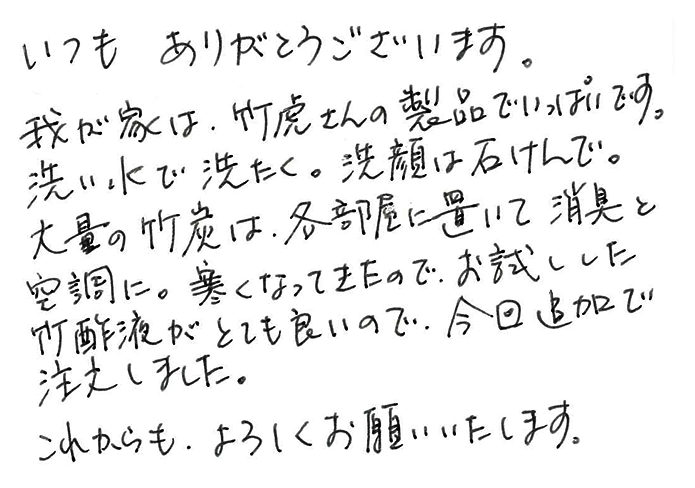 いつも ありがとうございます。
我が家は、竹虎さんの製品でいっぱいです。
洗い水で洗たく。洗顔は石けんで。
大量の竹炭は、各部屋に置いて消臭と
空調に。寒くなってきたので、お試しした
竹酢液がとても良いので、今回追加で
注文しました。
これからも、よろしくお願いいたします。